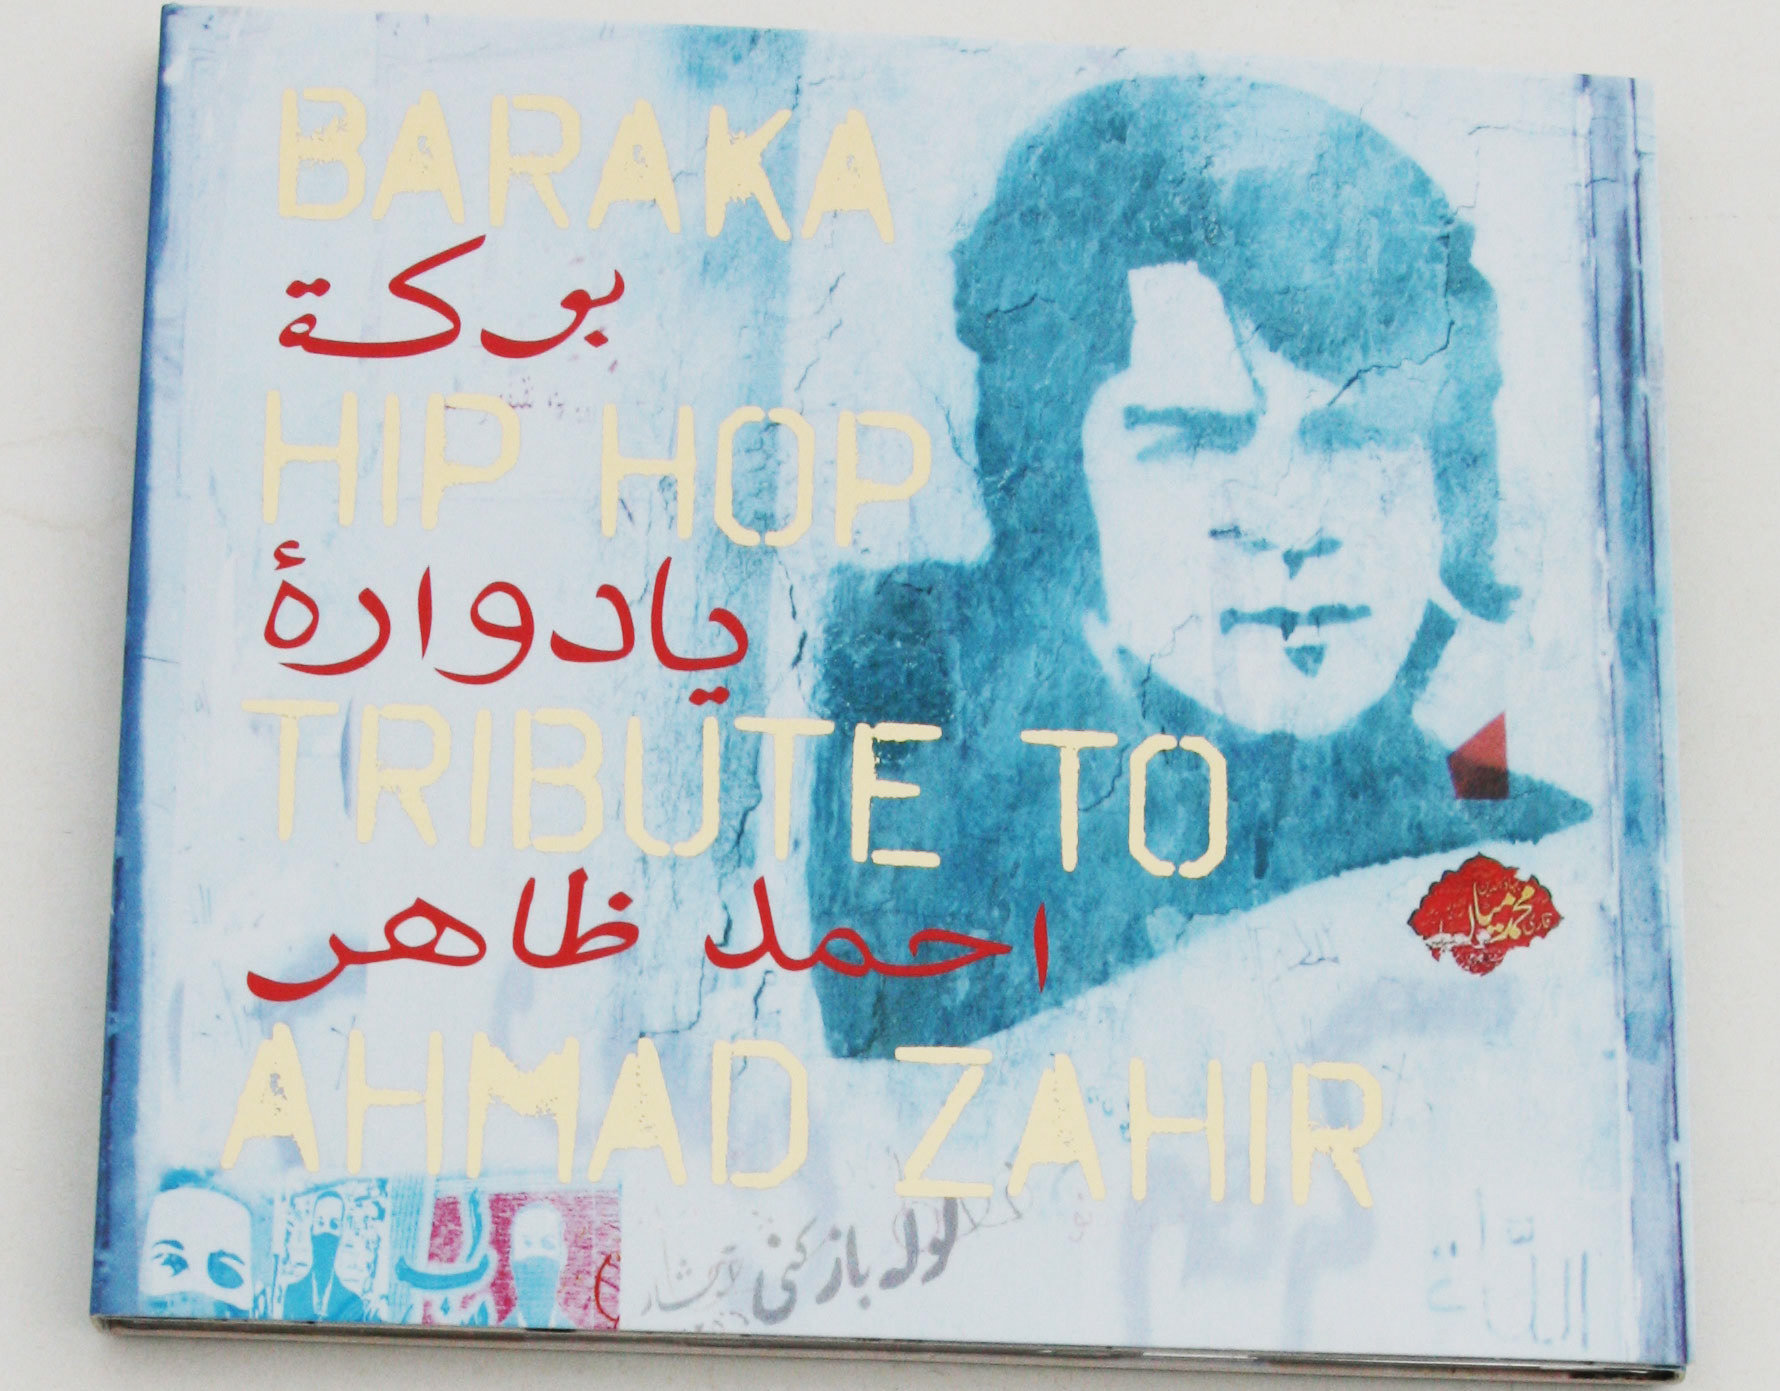 BARAKA
بوكة
HIP HOP
یادوارۀ
TRIBUTE TO
احمد ظاهر
AHMAD ZAHIR
لوله باز کنی